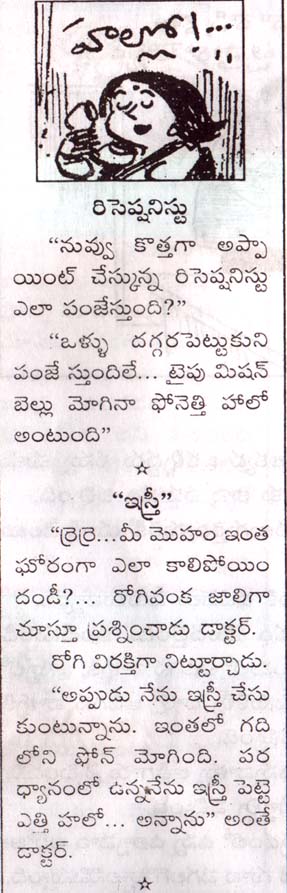 హల్లో!...
రిసెప్షనిస్టు
“నువ్వు కొత్తగా అప్పా
యింట్ చేస్కున్న రిసెప్షనిస్టు
ఎలా పంజేస్తుంది?”
“ఒళ్ళు దగ్గరపెట్టుకుని
పంజే స్తుందిలే... టైపు మిషన్
బెల్లు మోగినా ఫోనెత్తి హాలో
అంటుంది”
☆
“ఇస్త్రీ”
“రెర్రె...మీ మొహం ఇంత
ఘోరంగా ఎలా కాలిపోయిం
దండీ?... రోగివంక జాలిగా
చూస్తూ ప్రశ్నించాడు డాక్టర్.
రోగి విరక్తిగా నిట్టూర్చాడు.
“అప్పుడు నేను ఇస్త్రీ చేసు
కుంటున్నాను. ఇంతలో గది
లోని ఫోన్ మోగింది. పర
ధ్యానంలో ఉన్ననేను ఇస్త్రీ పెట్టె
ఎత్తి హలో... అన్నాను” అంతే
డాక్టర్.
☆